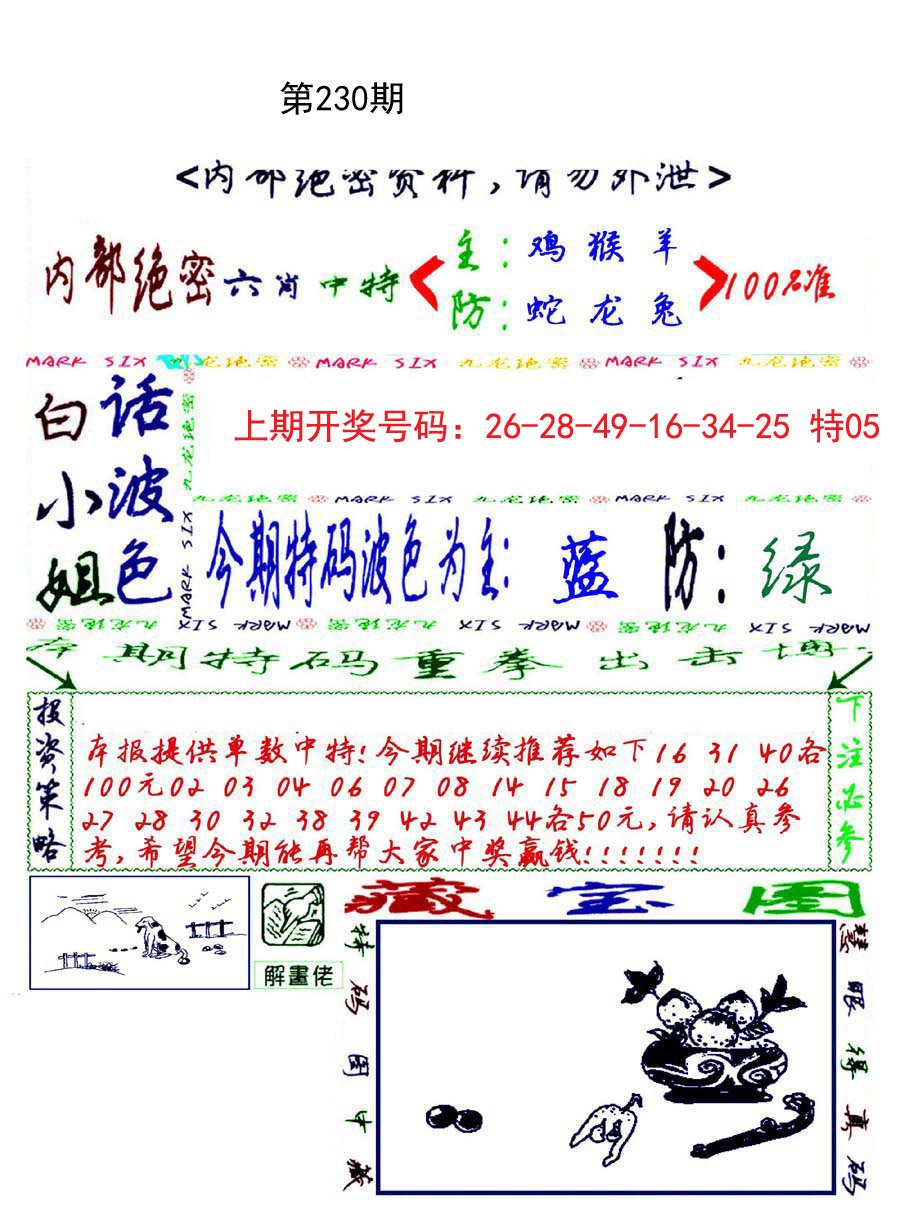 第230期
<内部绝密资料,请勿外泄>
内部绝密六肖中特
主:鸡猴羊
防:蛇龙兔
100%准
MARK SIX 九龙绝密 MARK SIX 九龙绝密 MARK SIX 九龙绝密
白小姐
话波色
九龙绝密
MARK SIX
上期开奖号码：26-28-49-16-34-25 特05
九龙绝密 MARK SIX 九龙绝密 MARK SIX 九龙绝密
今期特码波色为主: 蓝 防: 绿
九龙绝密 MARK SIX 九龙绝密 MARK SIX 九龙绝密 MARK SIX
本期特码重拳出击博
投资策略
本报提供单数中特!今期继续推荐如下16 31 40各
100元02 03 04 06 07 08 14 15 18 19 20 26
27 28 30 32 38 39 42 43 44各50元,请认真参
考,希望今期能再帮大家中奖赢钱!!!!!!!
下注必参
解畫佬
藏宝图
特码图中藏
慧眼得真码